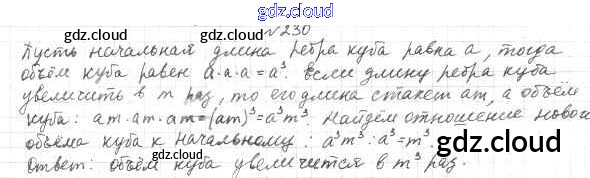 gdz.cloud
№ 230
gdz.cloud
gdz.cloud
Пусть начальная длина ребра куба равна a, тогда
объём куба равен a·a·a = a³. Если длину ребра куба
увеличить в m раз, то его длина станет am, а объём
куба: am·am·am = (am)³ = a³m³. Найдём отношение новой
объёма куба к начальному: a³m³ : a³ = m³.
Ответ: объём куба увеличится в m³ раз.
gdz.cloud
gdz.cloud